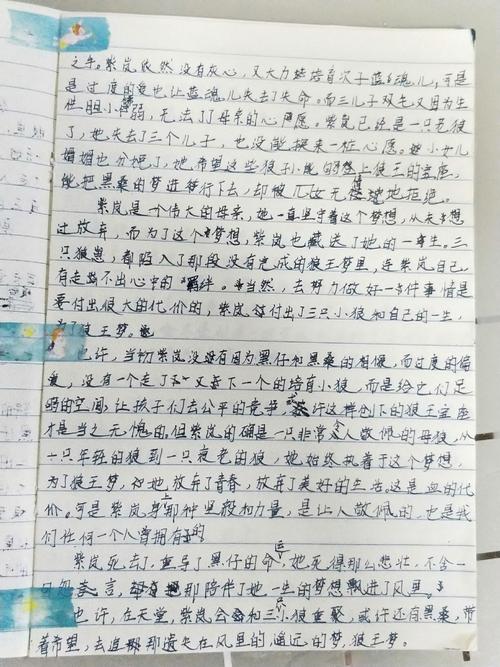 之手。紫岚依然没有灰心，又大力培培育次子蓝魂儿，可是
是过度的爱也让蓝魂儿失去了失命。而三儿子双毛又因为生
性胆小懦弱，无法了母亲的心愿。紫岚已经是一只老狼
了，她失去了三个儿子，也没能换来一桩心愿。她小女儿
媚媚也分娩了，她希望这些狼子小能够登上狼王的宝座，
能把黑桑的梦进行下去，却被儿女无情地拒绝。
紫岚是一个伟大的母亲，她一直坚守着这个梦想，从未想
过放弃，而为了这个梦想，紫岚也葬送了她的一生。三
只狼崽，都陷入了那段没有完成的狼王梦里，连紫岚自己
有走路不出心中的羁绊。当然，去努力做好一件事情是
要付出很大的代价的，紫岚付出了三只小狼和自己的一生，
了狼王梦。
也许，当初紫岚没有因为黑仔和黑桑的相像，而过度的偏
，没有一个走了又去下一个的培育小狼，而是给它们足
够的空间，让孩子们去公平的竞争，许这样创下的狼王宝座
才是当之无愧的。但紫岚的确是一只非常令人敬佩的母狼，从
一只年轻的狼到一只衰老的狼，她始终执着于这个梦想，
为了狼王梦，她放弃了青春，放弃了美好的生活。这是血的代
价。可是紫岚身上那种坚毅和力量，是让人敬佩的，也是我
们任何一个人曾拥有的
紫岚死去了，重导了黑仔的命，她死得那么悲壮，不含一
口怨言，那陪伴了她一生的梦想飘进了风里。
也许，在天堂，紫岚会和三个小狼重聚，或许还有黑桑，带
着希望，去追那遗失在风里的遥远的梦，狼王梦。